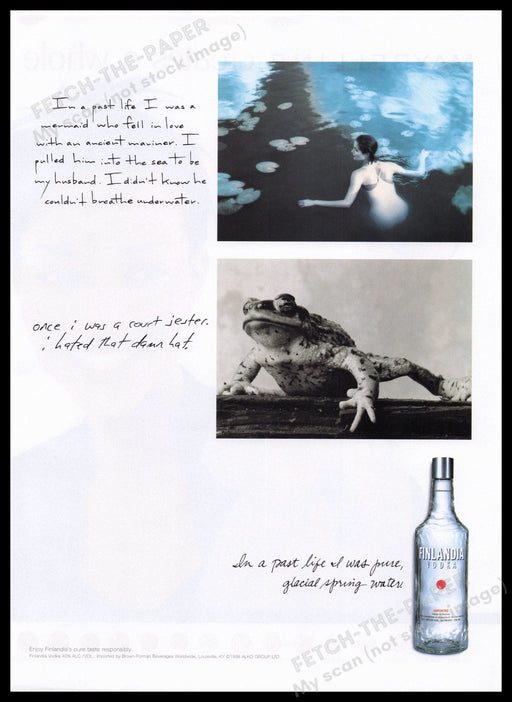 FETCH-THE-PAPER
My scan (not stock image)
In a past life I was a
mermaid who fell in love
with an ancient mariner. I
pulled him into the sea to be
my husband. I didn't know he
couldn't breathe underwater.
once i was a court jester.
i hated that damn hat.
In a past life I was pure,
glacial spring water.
FINLANDIA
VODKA
IMPORTED
Enjoy Finlandia's pure taste responsibly.
Finlandia Vodka 40% ALC./VOL., Imported by Brown-Forman Beverages Worldwide, Louisville, KY ©1998 ALKO GROUP LTD.
FETCH-THE-PAPER
My scan (not stock image)